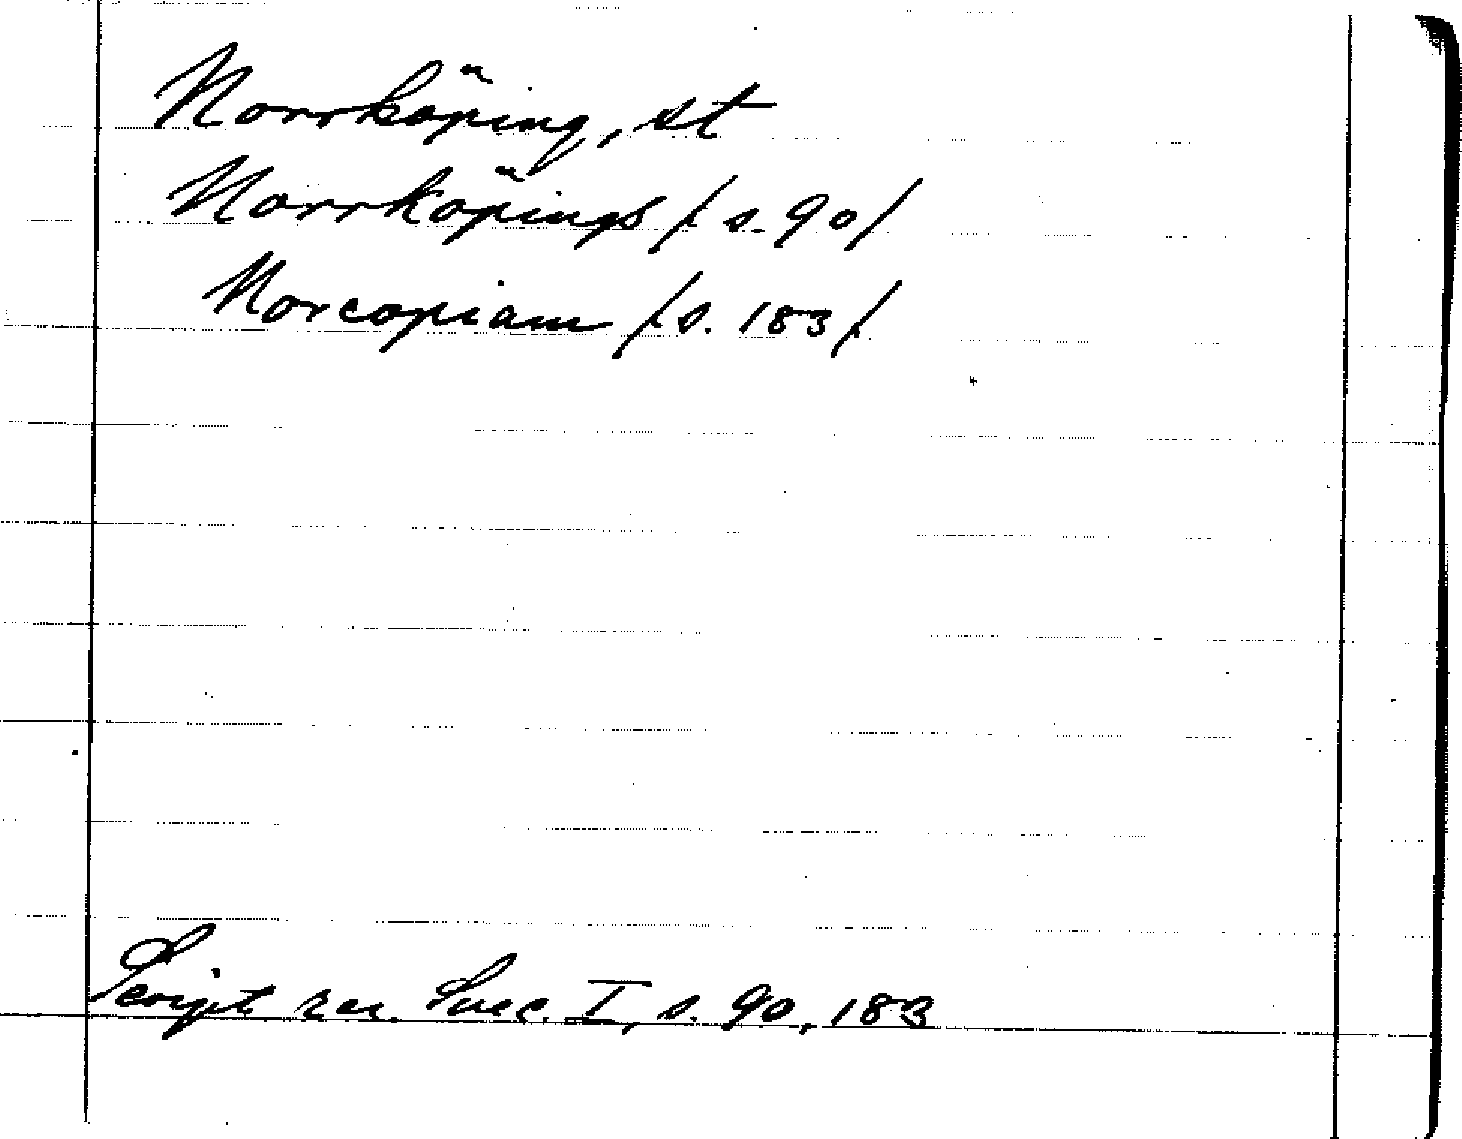 Norrköping, st
Norrköpings /s. 90/
Norcopiam /s. 183/
Script rer. Suec. I, s. 90, 183